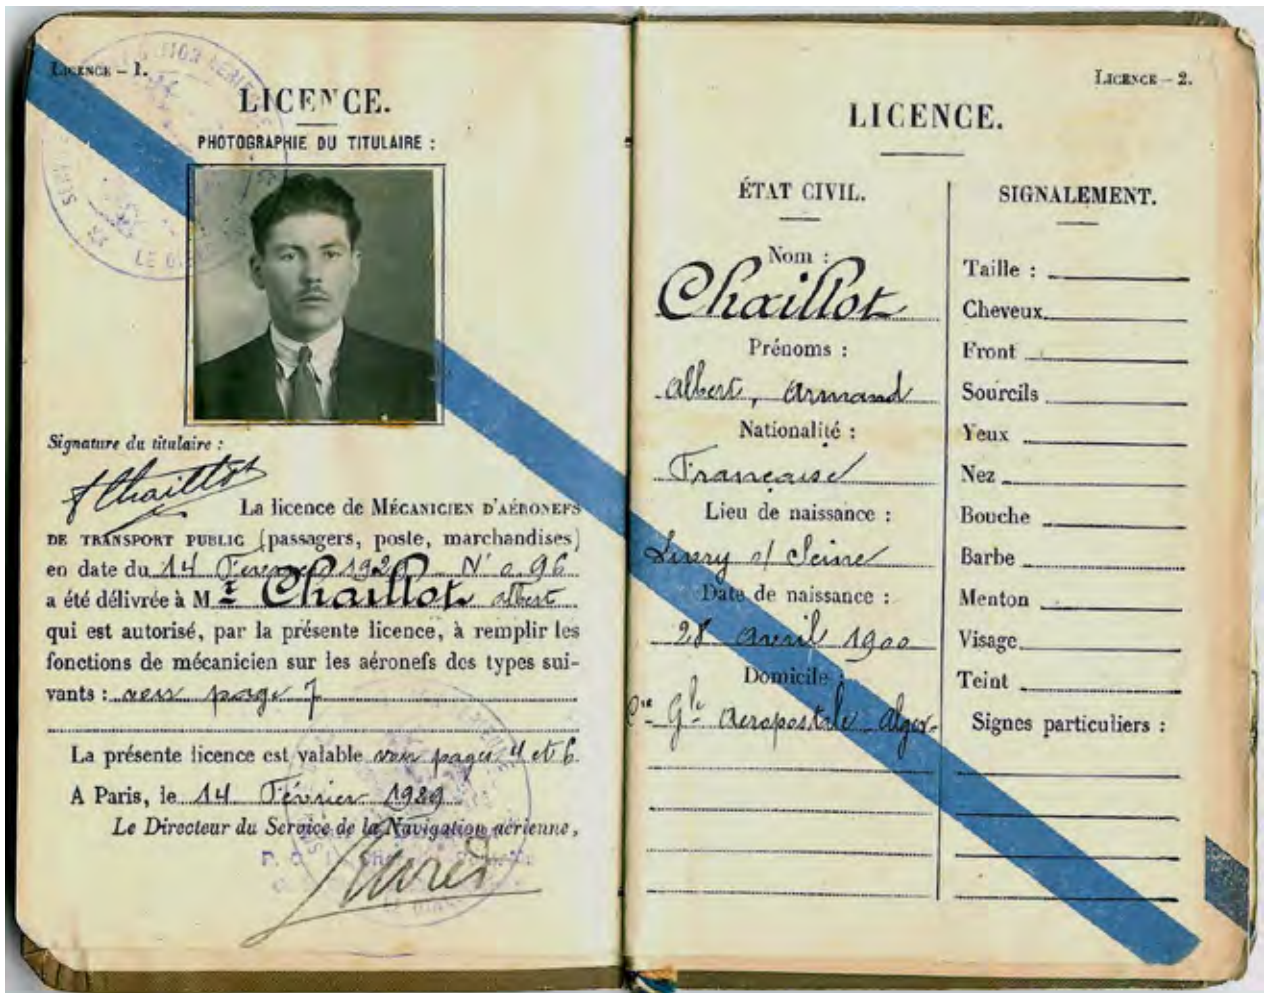 LICENCE – 1.
LICENCE.
PHOTOGRAPHIE DU TITULAIRE :
Signature du titulaire :
AChaillot
La licence de MÉCANICIEN D'AÉRONEFS
DE TRANSPORT PUBLIC (passagers, poste, marchandises)
en date du 14 1929 N° 96
a été délivrée à Mr Chaillot Albert
qui est autorisé, par la présente licence, à remplir les
fonctions de mécanicien sur les aéronefs des types sui-
vants : voir page 7
La présente licence est valable voir pages 4 et 6
A Paris, le 14 Février 1929
Le Directeur du Service de la Navigation aérienne,
LICENCE – 2.
LICENCE.
ÉTAT CIVIL.
Nom :
Chaillot
Prénoms :
Albert, Armand
Nationalité :
Française
Lieu de naissance :
s/ Seine
Date de naissance :
28 avril 1900
Domicile :
Cie Gle Aéropostale Alger
SIGNALEMENT.
Taille :
Cheveux
Front
Sourcils
Yeux
Nez
Bouche
Barbe
Menton
Visage
Teint
Signes particuliers :